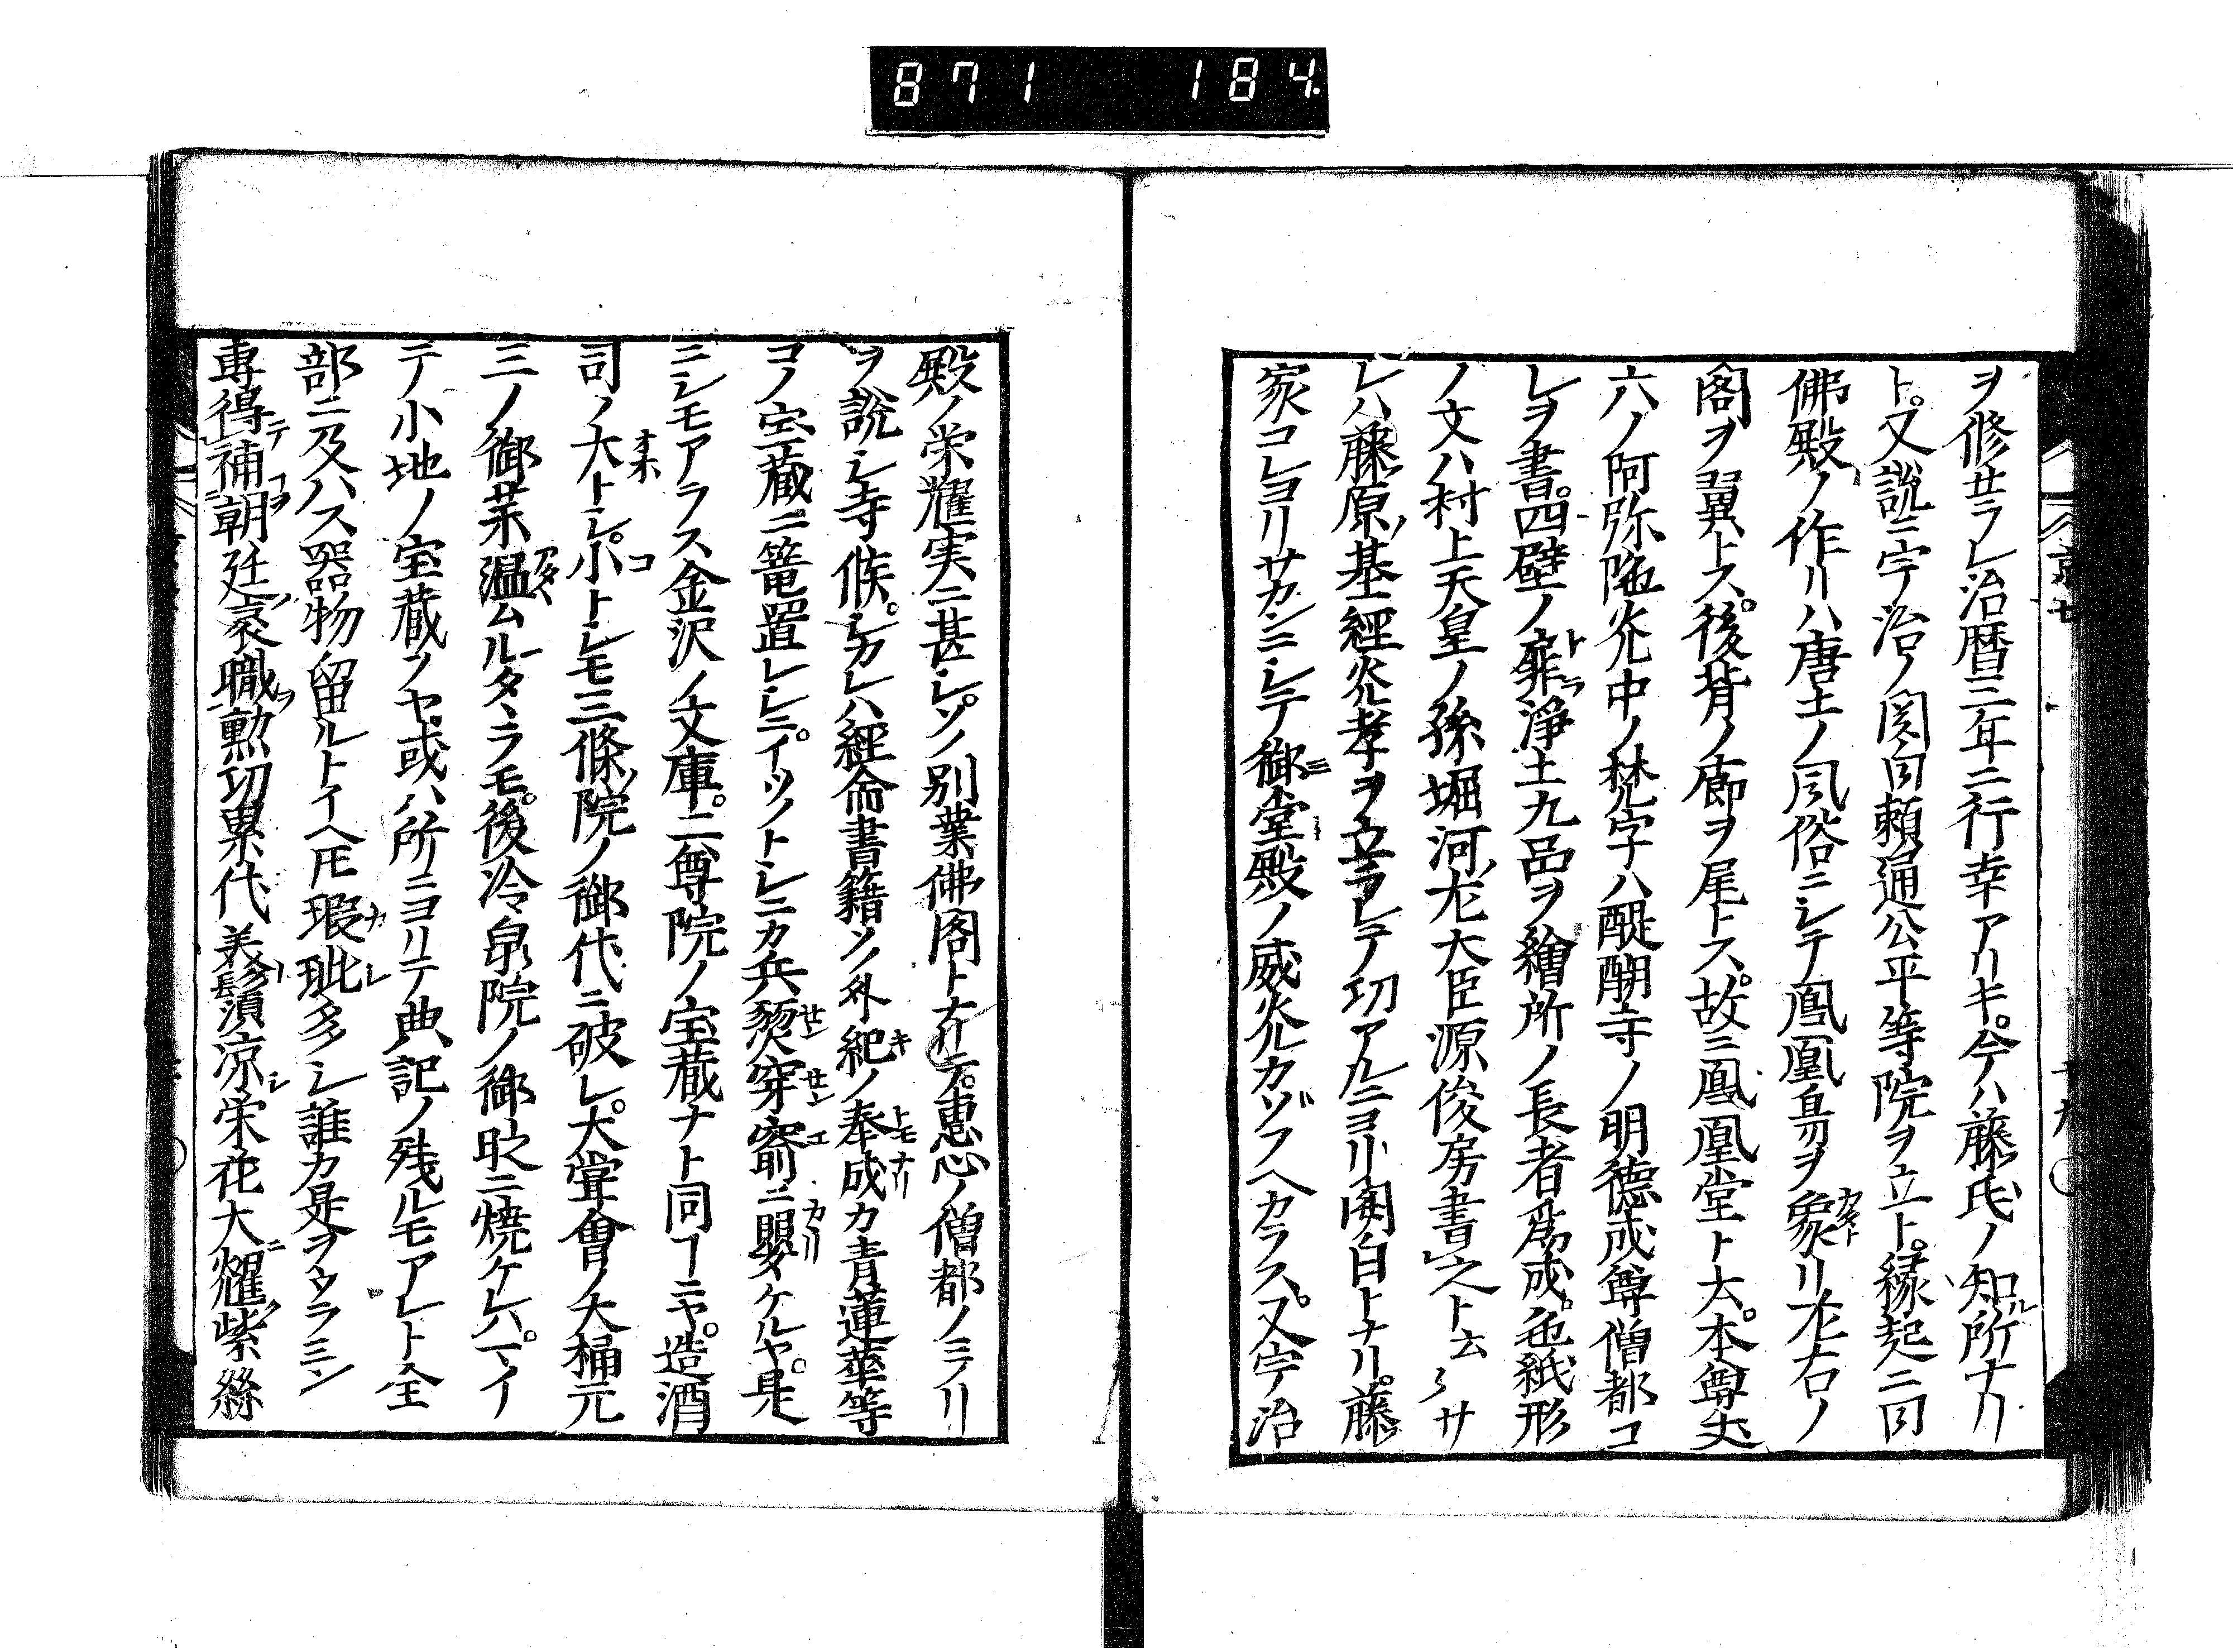 871 184.
ヲ修セラレ治暦三年ニ行幸アリキ。今ハ藤氏ノ知ル所ナリ
ト。又説ニ宇治ノ関白頼通公平等院ヲ立ト。縁起ニ曰
佛殿ノ作リハ唐土ノ風俗ニシテ鳳凰鳥ヲ象リ左右ノ
閣ヲ翼トス。後背ノ廊ヲ尾トス。故ニ鳳凰堂ト云。本尊丈
六ノ阿弥陀光中ノ梵字ハ醍醐寺ノ明徳成尊僧都コ
レヲ書。四壁ノ扉浄土九品ヲ繪所ノ長者為成。色紙形
ノ文ハ村上天皇ノ孫堀河左大臣源俊房書之ト云々サ
レハ藤原ノ基經光孝ヲ立ラレテ功アルニヨリ関白トナリ。藤
家コレヨリサカンニシテ御堂殿ノ威光カゾフヘカラス。又宇治
殿ノ栄耀実ニ甚シ。ソノ別業佛閣トナリテ。恵心ノ僧都ノミノリ
ヲ説シ寺候。シカレハ經侖書籍ソノ外紀ノ奉成カ青蓮華等
コノ宝蔵ニ篭置レシニ。イツノトシニカ兵燹穿窬ニ嬰ケルヤ。是
ニシモアラス金沢ノ文庫。二尊院ノ宝蔵ナト同ーニヤ。造酒
司ノ大トシ。小トシモ三條院ノ御代ニ破レ。大甞會ノ大桶元
三ノ御薬温ムルタヽラモ。後冷泉院ノ御時ニ焼ケレハ。一イ
テ小地ノ宝蔵ノヤ。或ハ所ニヨリテ典記ノ残ルモアレト全
部ニ及ハス器物留ルトイヘ𪜈瑕玼多シ誰カ是ヲウラミン
專得補朝廷衮職勲功累代美鬚須凉栄花大耀紫絲